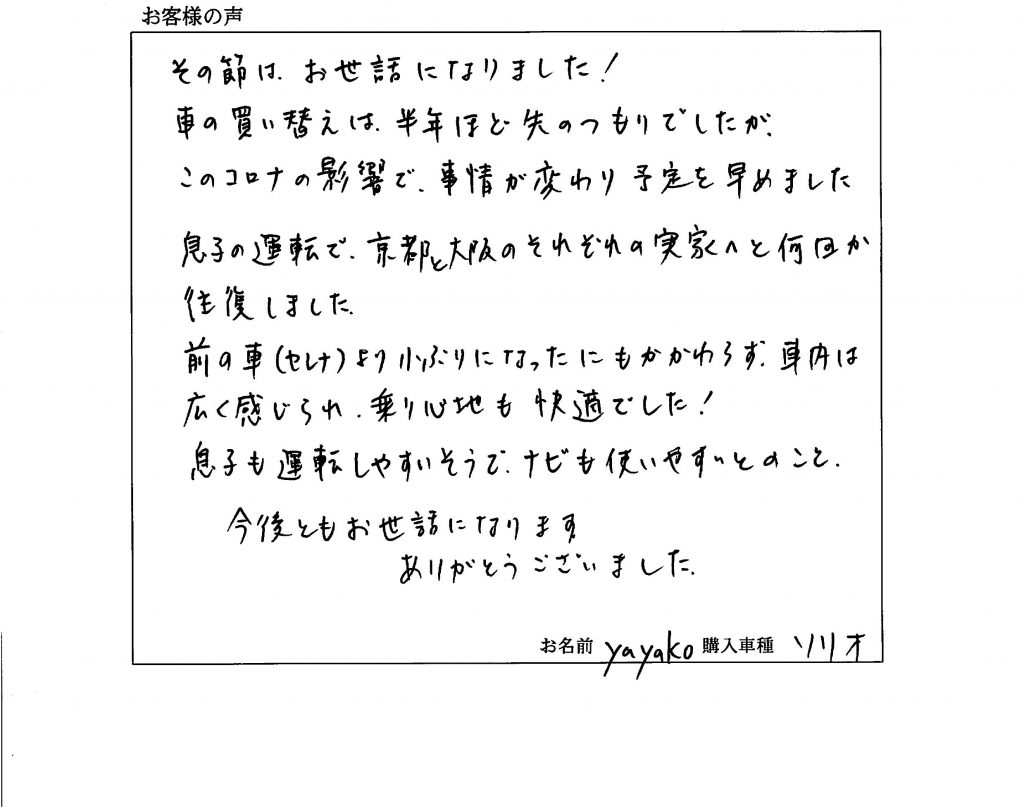 お客様の声
その節は、お世話になりました!
車の買い替えは、半年ほど先のつもりでしたが、
このコロナの影響で、事情が変わり予定を早めました
息子の運転で、京都と大阪のそれぞれの実家へと何回か
往復しました。
前の車(セレナ)より小ぶりになったにもかかわらず、車内は
広く感じられ、乗り心地も快適でした!
息子も運転しやすいそうで、ナビも使いやすいとのこと。
今後ともお世話になります
ありがとうございました。
お名前 yayako 購入車種 ソリオ